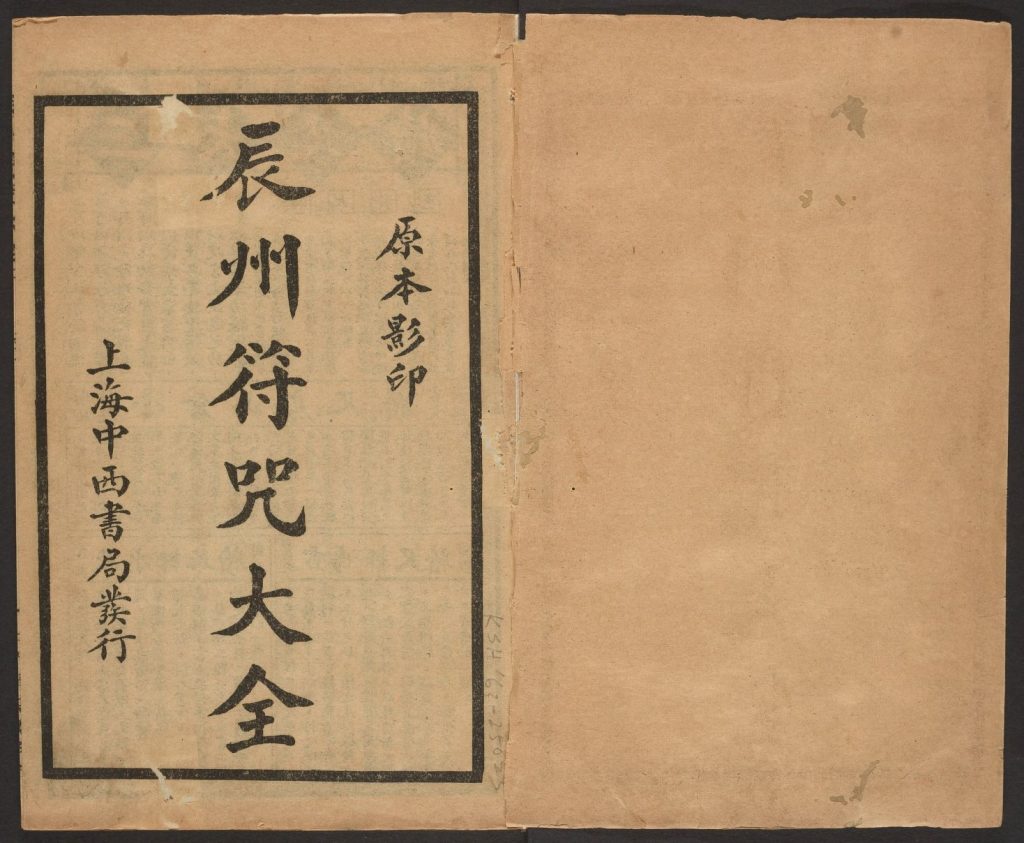 原本影印
辰州符咒大全
上海中西書局發行